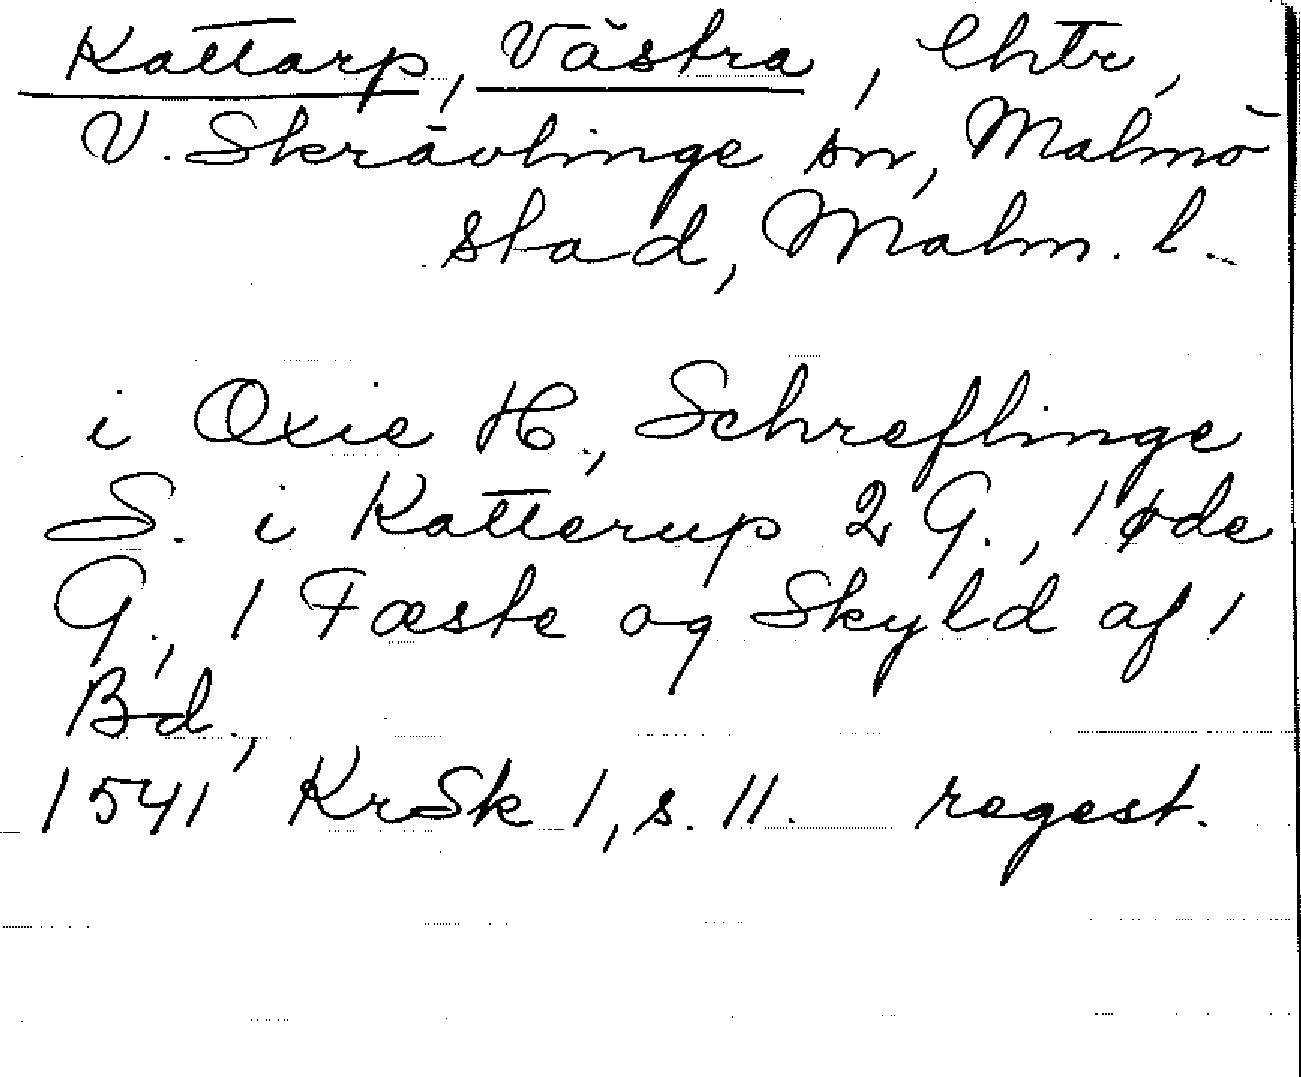 Kattarp, Västra, Chtr,
V. Skrävlinge sn, Malmö
stad, Malm. l.
i Oxie H., Schreflinge
S. i Katterup 2 G., 1 øde
G., 1 Fæste og Skyld af 1
Bd.,
1541 KrSk 1, s. 11. regest.